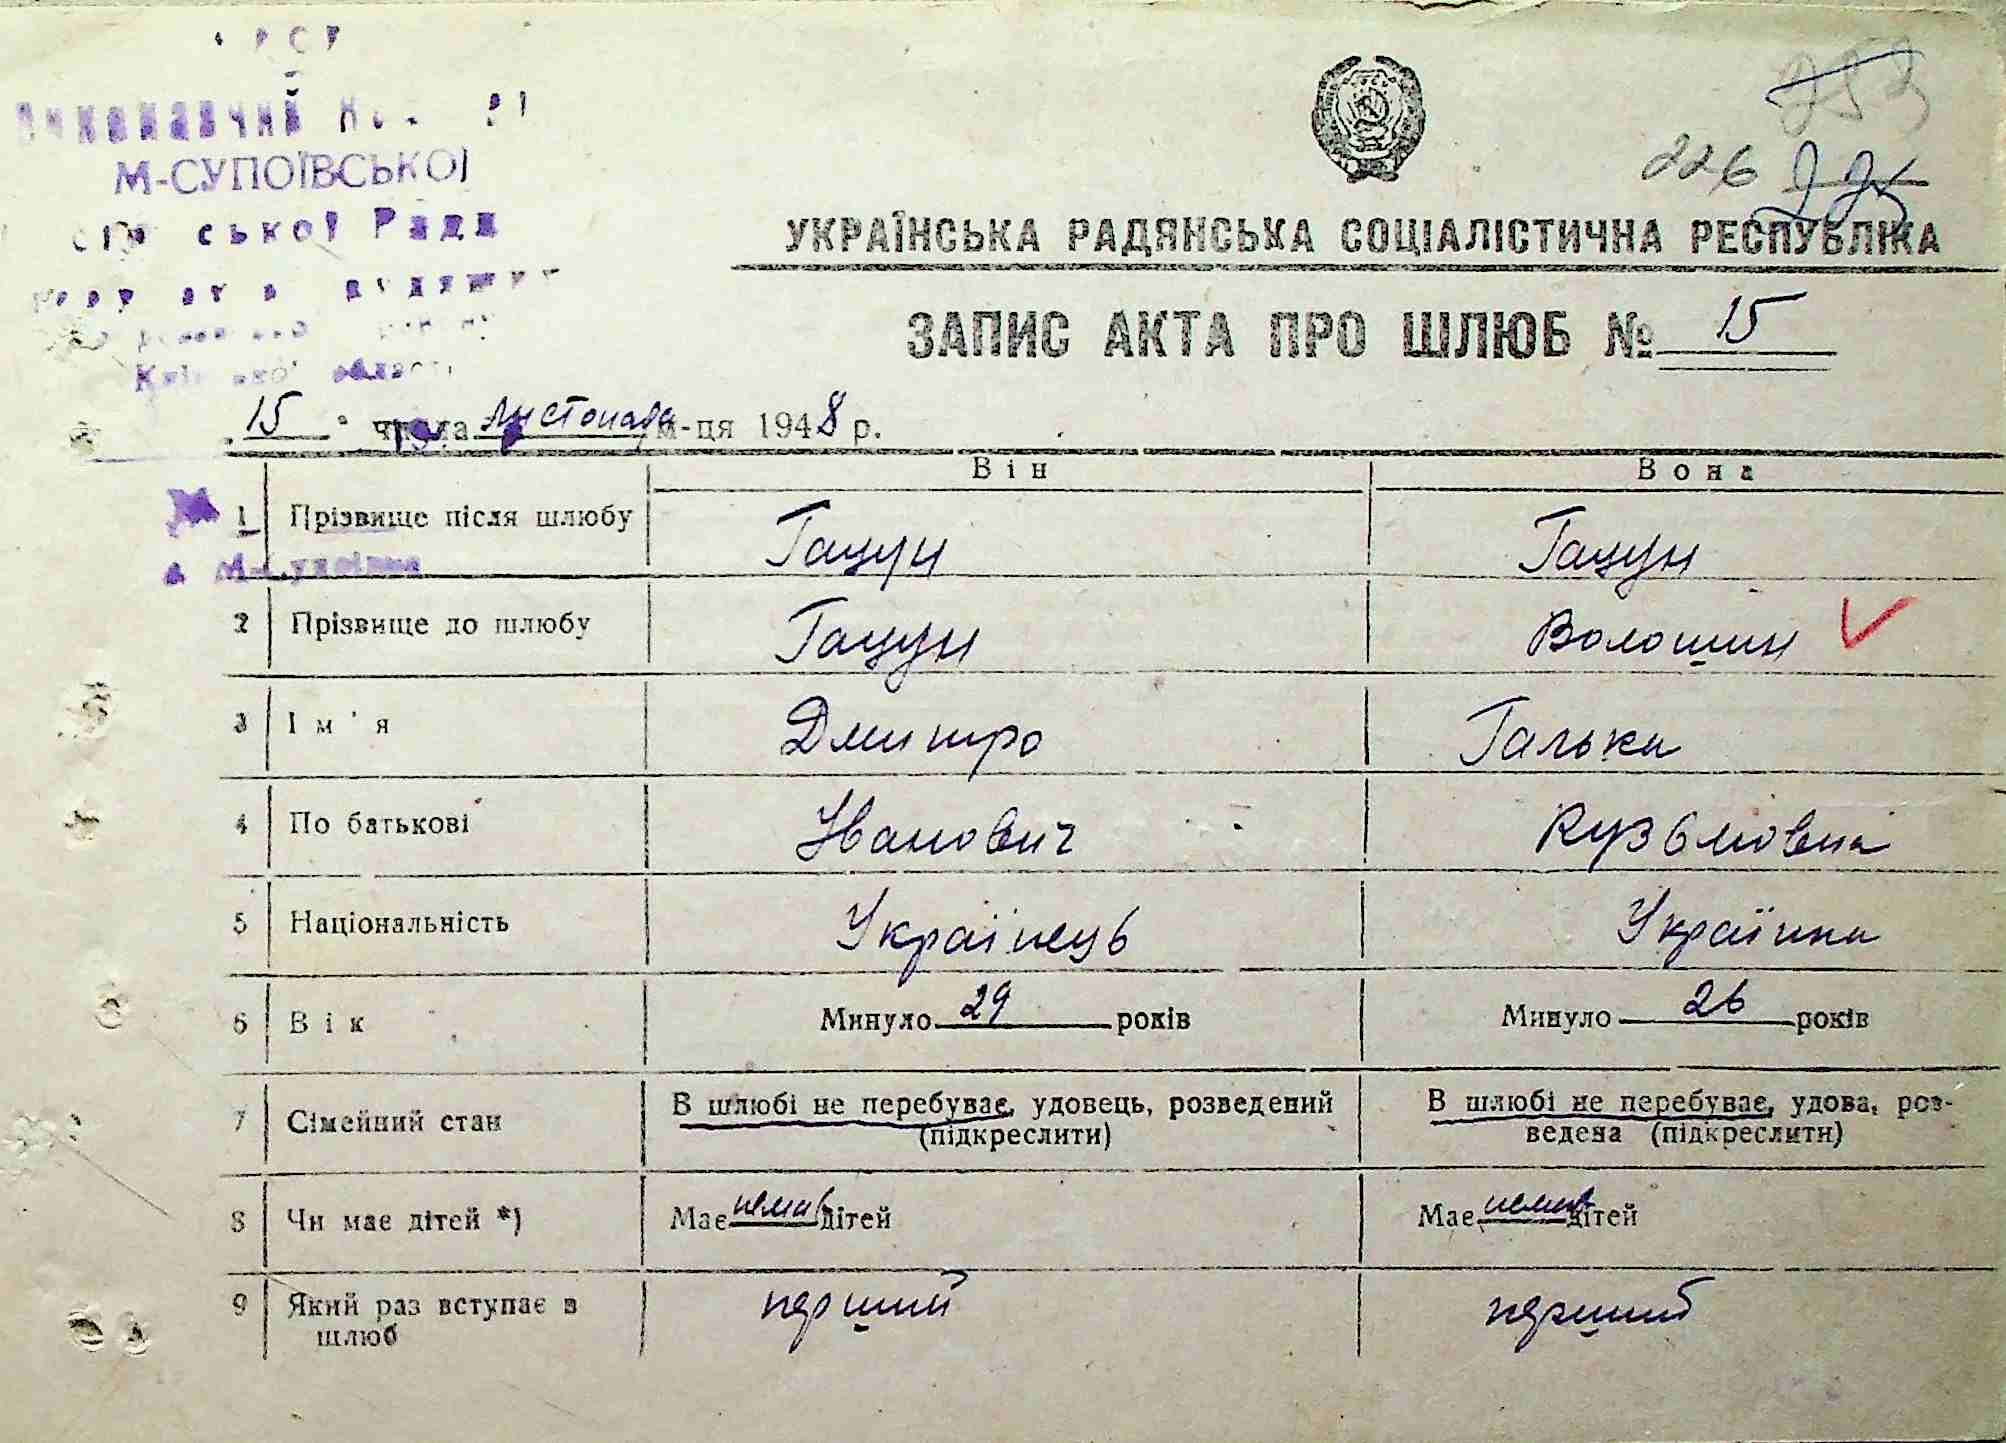 М-СУПОЇВСЬКОЇ
ської Ради
області
226
УКРАЇНСЬКА РАДЯНСЬКА СОЦІАЛІСТИЧНА РЕСПУБЛІКА
ЗАПИС АКТА ПРО ШЛЮБ № 15
15 числа листопада м-ця 1948 р.
Він Вона
1 Прізвище після шлюбу Гацун Гацун
2 Прізвище до шлюбу Гацун Волошин
3 Ім'я Дмитро Галька
4 По батькові Іванович Кузьмовна
5 Національність Українець Українка
6 Вік Минуло 29 років Минуло 26 років
7 Сімейний стан В шлюбі не перебуває, удовець, розведений В шлюбі не перебуває, удова, роз-
(підкреслити) ведена (підкреслити)
8 Чи має дітей *) Має нема дітей Має нема дітей
9 Який раз вступає в перший перший
шлюб